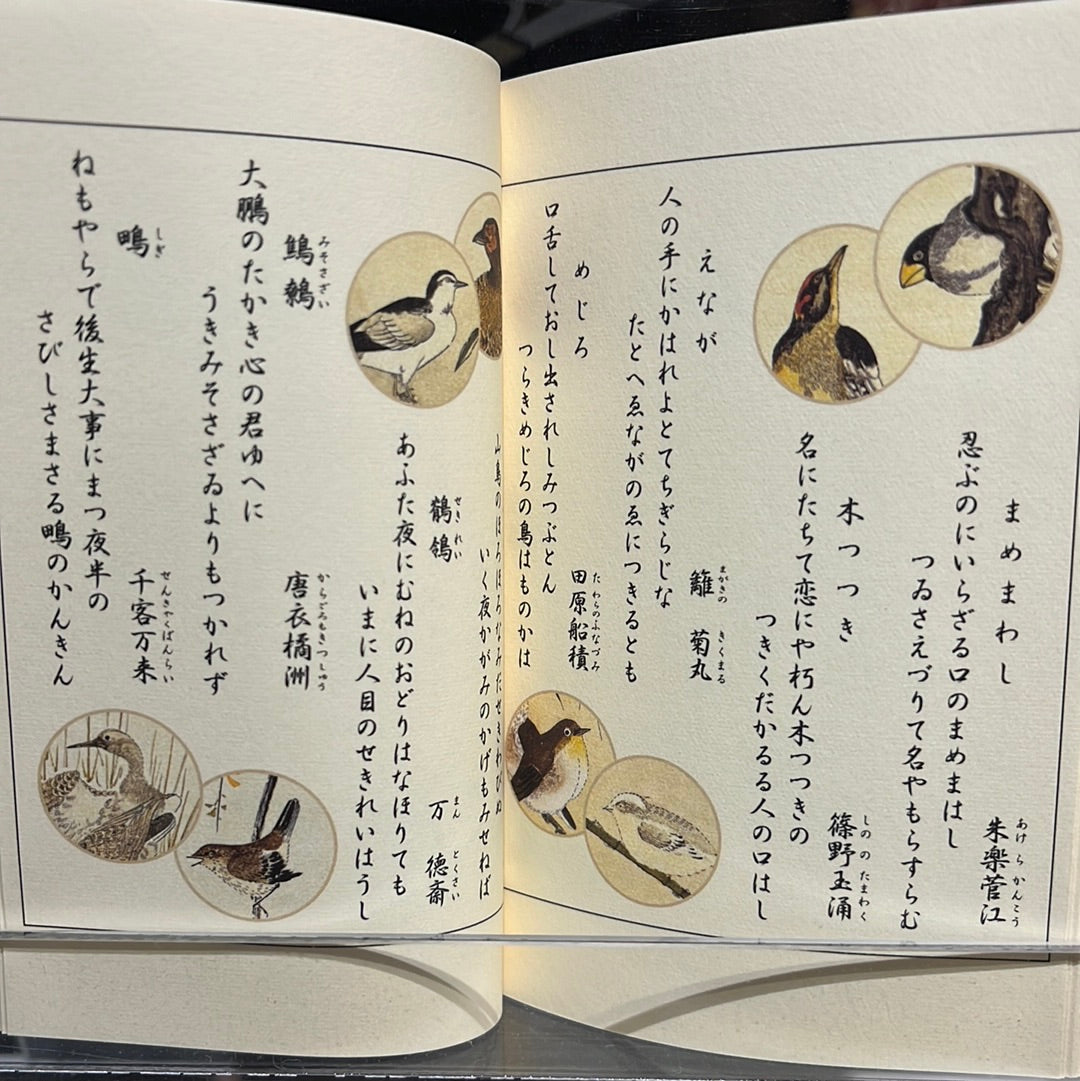 まめまわし
あけらかんこう
朱楽菅江
忍ぶのにいらざる口のまめまはし
つゐさえづりて名やもらすらむ
木つつき
しののたまわく
篠野玉涌
名にたちて恋にや朽ん木つつきの
つきくだかるる人の口はし
えなが
まがきの きくまる
籬 菊丸
人の手にかはれよとてちぎらじな
たとへゑながのゑにつきるとも
めじろ
たわらのふなづみ
田原船積
口舌しておし出されしみつぶとん
つらきめじろの鳥はものかは
山鳥のほろほろなみだせきわびぬ
いく夜かがみのかげもみせねば
せきれい
鶺鴒
まん とくさい
万 徳斎
あふた夜にむねのおどりはなほりても
いまに人目のせきれいはうし
みそさざい
鷦鷯
からごろもきつしゅう
唐衣橘洲
大鵬のたかき心の君ゆへに
うきみそさざゐよりもつかれず
しぎ
鴫
せんきゃくばんらい
千客万来
ねもやらで後生大事にまつ夜半の
さびしさまさる鴫のかんきん